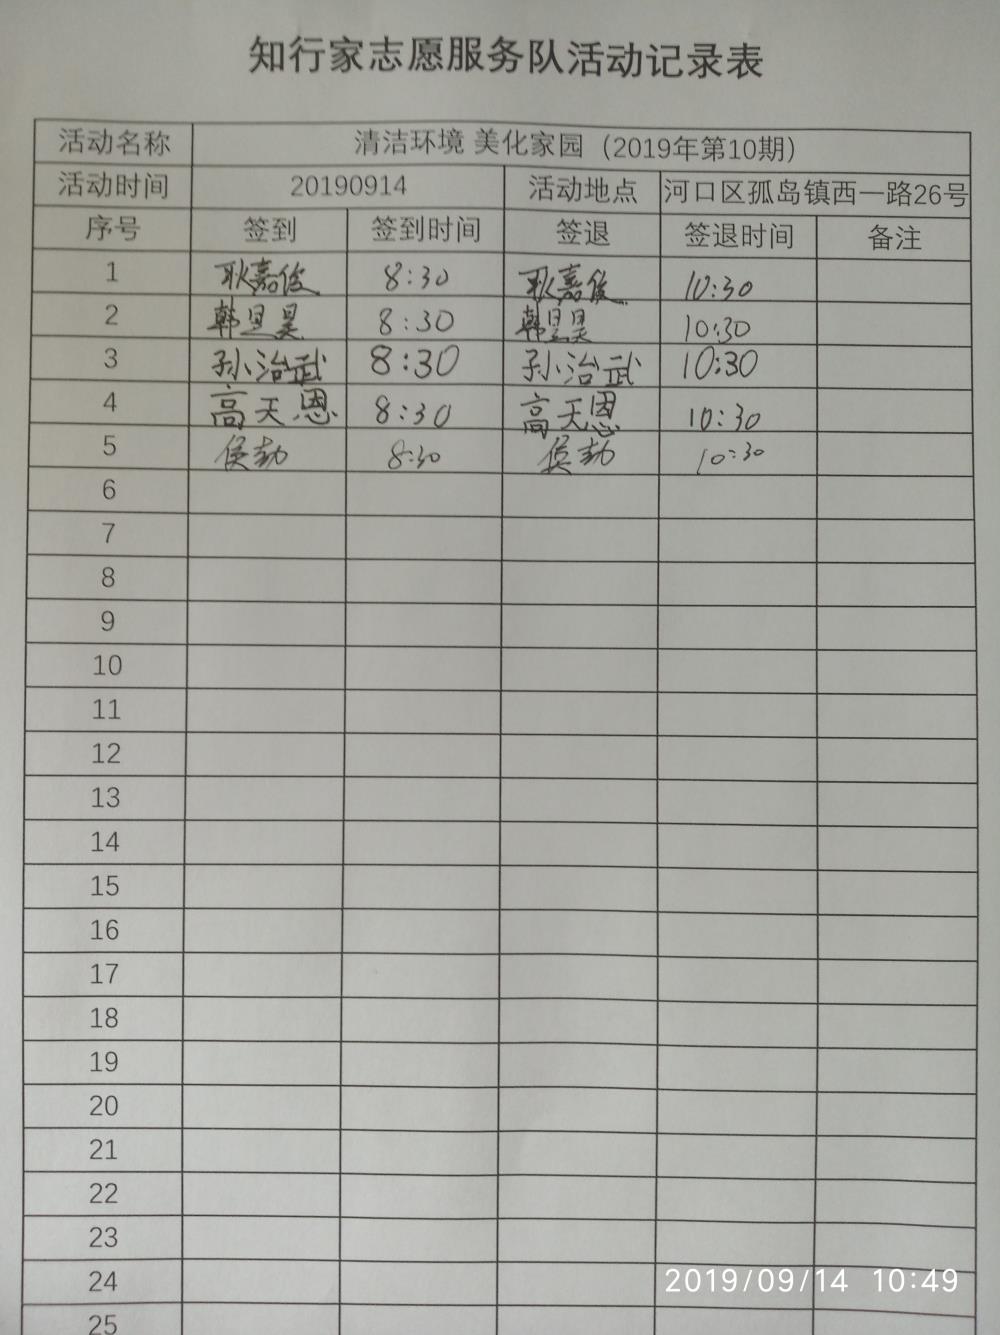 知行家志愿服务队活动记录表
活动名称 清洁环境 美化家园（2019年第10期）
活动时间 20190914 活动地点 河口区孤岛镇西一路26号
序号 签到 签到时间 签退 签退时间 备注
1 耿嘉俊 8:30 耿嘉俊 10:30
2 韩昱昊 8:30 韩昱昊 10:30
3 孙治武 8:30 孙治武 10:30
4 高天恩 8:30 高天恩 10:30
5 侯勃 8:30 侯勃 10:30
6
7
8
9
10
11
12
13
14
15
16
17
18
19
20
21
22
23
24
2019/09/14 10:49
25